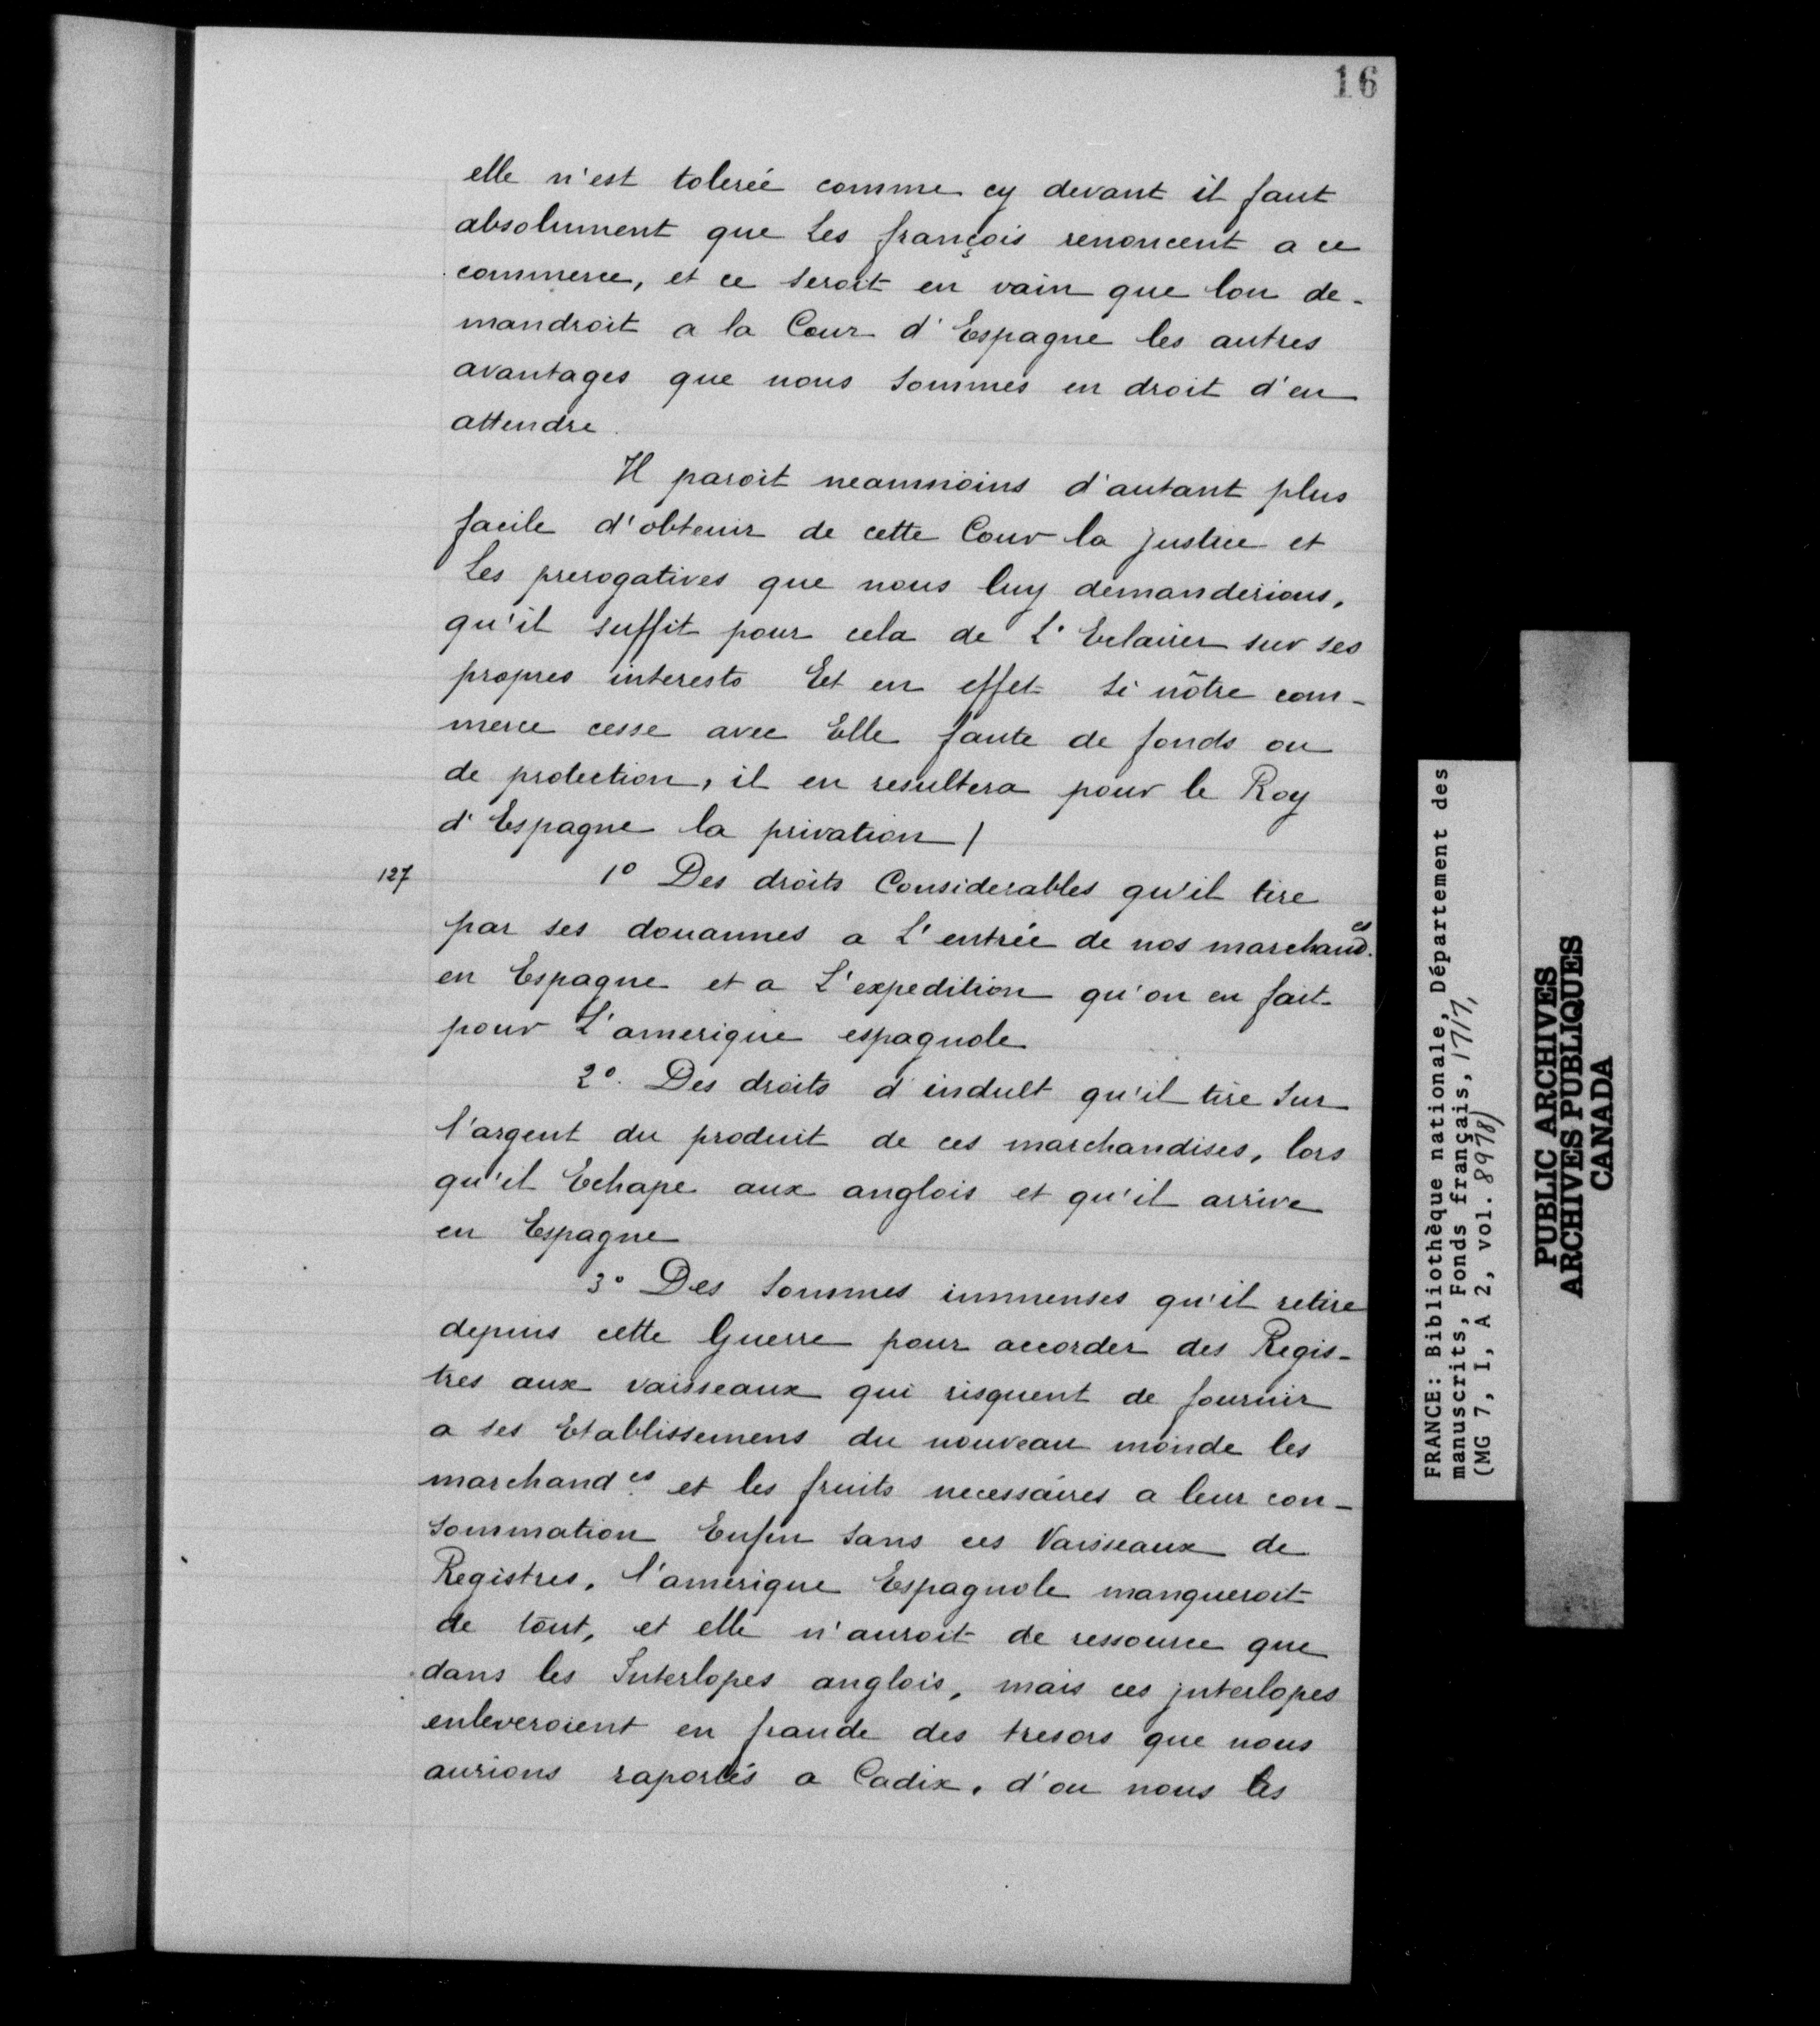 16
elle n'est tolerée comme cy devant il faut
absolument que Les françois renoncent a ce
commerce, et ce seroit en vain que lon de-
mandroit a la Cour d'Espagne les autres
avantages que nous sommes en droit d'en
attendre.
Il paroit neamnoins d'autant plus
facile d'obtenir de cette Cour la justice et
Les prerogatives que nous luy demanderions,
qu'il suffit pour cela de L'Eclairer sur ses
propres interests Et en effet si nôtre com-
merce cesse avec Elle faute de fonds ou
de protection, il en resultera pour le Roy
d'Espagne la privation /
127
1º Des droits Considerables qu'il tire
par ses douannes a L'entrée de nos marchand.es
en Espagne et a L'expedition qu'on en fait
pour L'amerique espagnole
2º. Des droits d'indult qu'il tire sur
l'argent du produit de ces marchandises, lors
qu'il Echape aux anglois et qu'il arrive
en Espagne
3º Des sommes immenses qu'il retire
depuis cette Guerre pour accorder des Regis-
tres aux vaisseaux qui risquent de fournir
a ses Etablissemens du nouveau monde les
marchand.es et les fruits necessaires a leur con-
sommation Enfin sans ces Vaisseaux de
Registres, l'amerique Espagnole manqueroit
de tout, et elle n'auroit de ressource que
dans les Interlopes anglois, mais ces jnterlopes
enleveroient en fraude des tresors que nous
aurions raportés a Cadix, d'ou nous les
FRANCE: Bibliothèque nationale, Département des
manuscrits, Fonds français, 1717,
(MG 7, I, A 2, vol. 8978)
PUBLIC ARCHIVES
ARCHIVES PUBLIQUES
CANADA